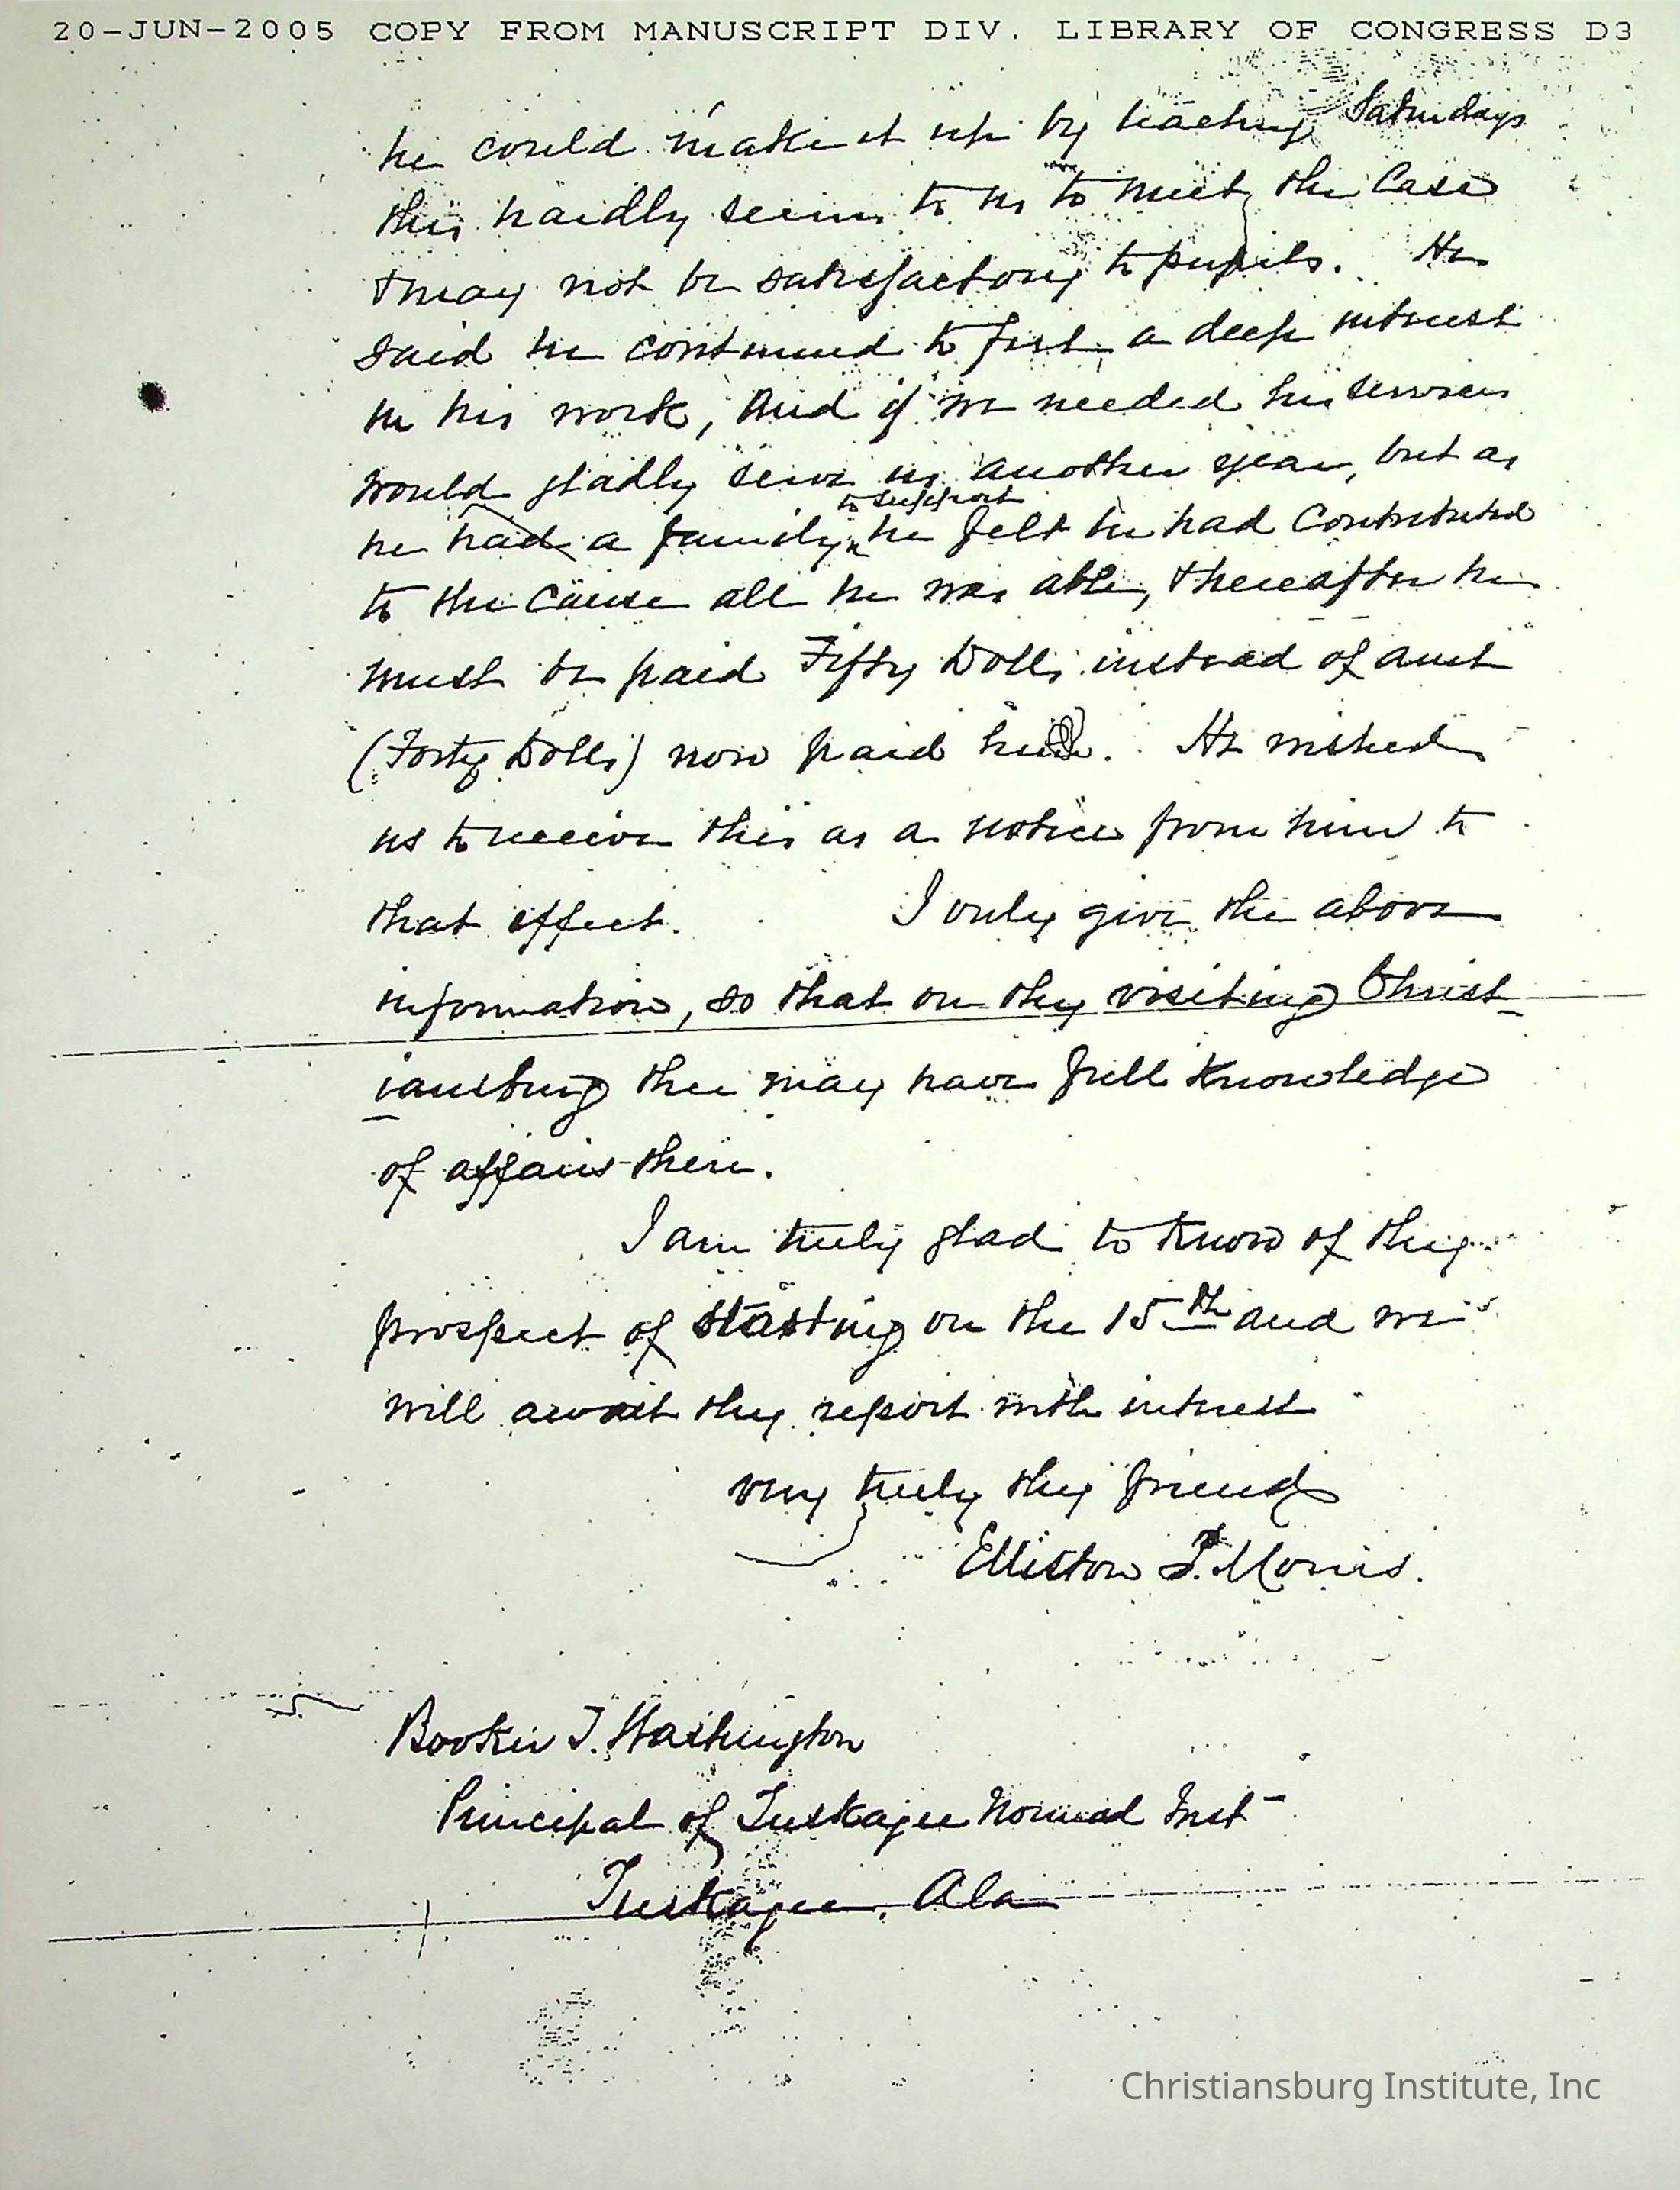 20-JUN-2005 COPY FROM MANUSCRIPT DIV. LIBRARY OF CONGRESS D3
he could make it up by teaching Saturdays
this hardly seems to us to meet the Case
& may not be satisfactory to pupils. He
said he continued to feel a deep interest
in his work, and if we needed his services
would gladly serve us another year, but as
to support
he had a family, he felt he had Contributed
to the Cause all he was able, & hereafter he
must be paid Fifty Dolls instead of amt
(Forty Dolls) now paid him. He wished
us to receive this as a notice from him to
that effect. I only give the above
information, so that on thy visiting Christ-
iansburg thee may have full knowledge
of affairs there.
I am truly glad to know of thy
prospect of starting on the 15th and we
will await thy report with interest
very truly thy friend
Elliston P. Morris.
Booker T. Washington
Principal of Tuskagee Normal Inst
Tuskagee, Ala
Christiansburg Institute, Inc